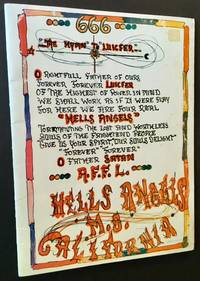 666
"The Hymn" To Lucifer
O Rightfull Father of Ours
Forever Forever Lucifer
Of The Highest of Power in Mind
We Shall Work As if it were Play
For Here We Are Your Real
"Hells Angels"
Tormenting The Lost and Worthless
Souls of The Frightened People
Give Us Your Spirit, Our Souls Delight
"Forever" "Forever"
O Father Satan
A.F.F.L.
Hells Angels
M.C.
California